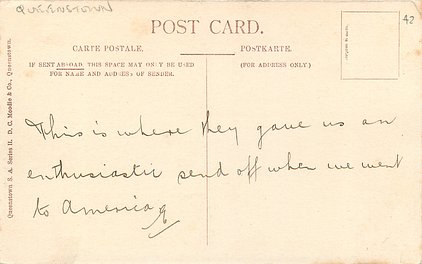 QUEENSTOWN
42
POST CARD.
CARTE POSTALE.
POSTKARTE.
IF SENT ABROAD, THIS SPACE MAY ONLY BE USED
FOR NAME AND ADDRESS OF SENDER.
(FOR ADDRESS ONLY)
Queenstown S. A. Series II. D. C. Moodie & Co., Queenstown.
This is where they gave us an
enthusiastic send off when we went
to America